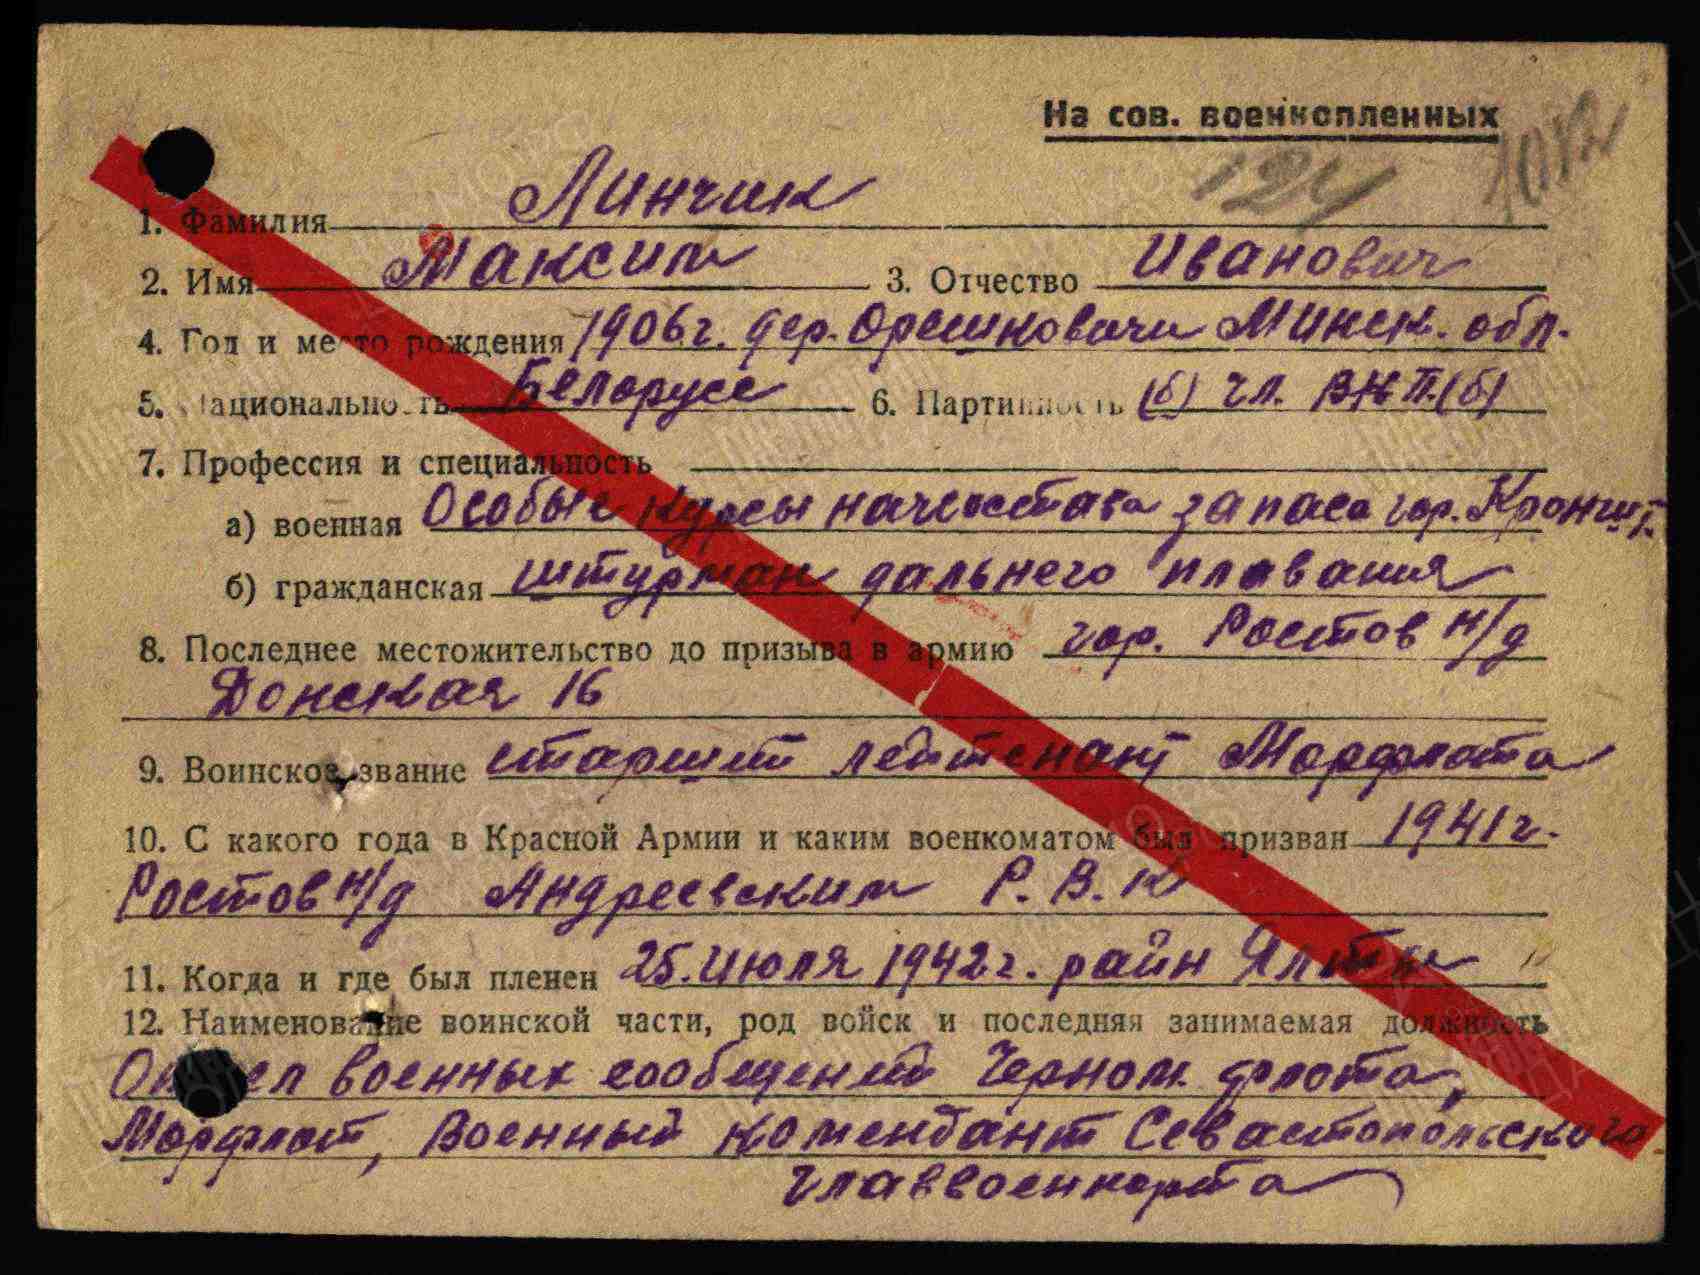 На сов. военнопленных
1. Фамилия Линчик
2. Имя Максим 3. Отчество Иванович
4. Год и место рождения 1906 г. дер. Орешковичи Минск. обл.
5. Национальность Белорусс 6. Партийность (б) чл. ВКП.(б)
7. Профессия и специальность
а) военная Особые курсы начсостава запаса гор. Кроншт.
б) гражданская штурман дальнего плавания
8. Последнее местожительство до призыва в армию гор. Ростов н/д
Донская 16
9. Воинское звание старший лейтенант Морфлота
10. С какого года в Красной Армии и каким военкоматом был призван 1941 г.
Ростов н/д Андреевским Р.В.К
11. Когда и где был пленен 25. июля 1942 г. район Ялты
12. Наименование воинской части, род войск и последняя занимаемая должность
Отдел военных сообщений Черном. флота,
Морфлот, Военный комендант Севастопольского
главвоенпорта